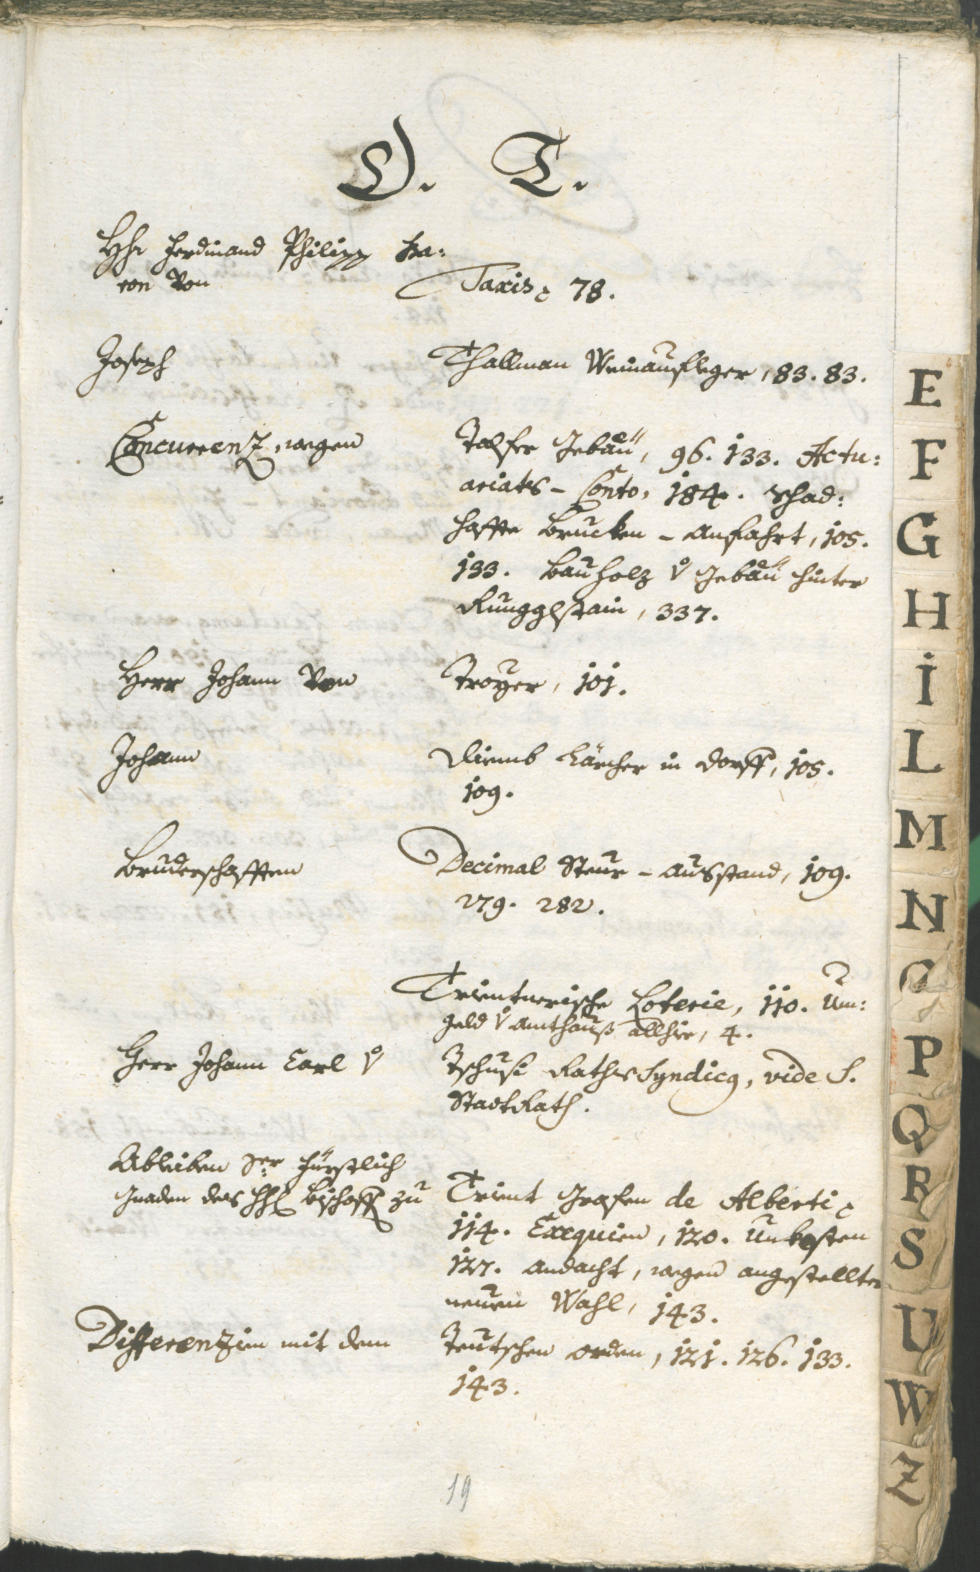 D. T.
Hh: Ferdinand Philipp Ba:
ron Von Taxis, 78.
Joseph Thallman Weinaufleger, 83. 83.
Concurrenz, wegen Talfer Gebäu, 96. 133. Actu:
ariats - Conto, 184. Schad:
haffte Brucken - Anfahrt, 105.
133. Bauholz v Gebäu hinter
Rungglstain, 337.
Herr Johann Von Troyer, 101.
Johann Dirnb Lärcher in Dorff, 105.
109.
Bruderschafften Decimal Steur - Ausstand, 109.
279. 282.
Trientnerische Loterie, 110. Um:
geld v Ambthauß allhie, 4.
Herr Johann Carl v Tschusi Raths Syndicg, vide S.
StadtRath.
Ableiben Ser Fürstlich
Gnaden des Hh Bischoff zu Trient Grafen de Alberti,
114. Exequien, 120. Unkosten
127. Andacht, wegen angestellter
neuen Wahl, 143.
Differenzien mit dem Teutschen Orden, 121. 126. 133.
143.
19
E
F
G
H
I
L
M
N
O
P
Q
R
S
U
W
Z